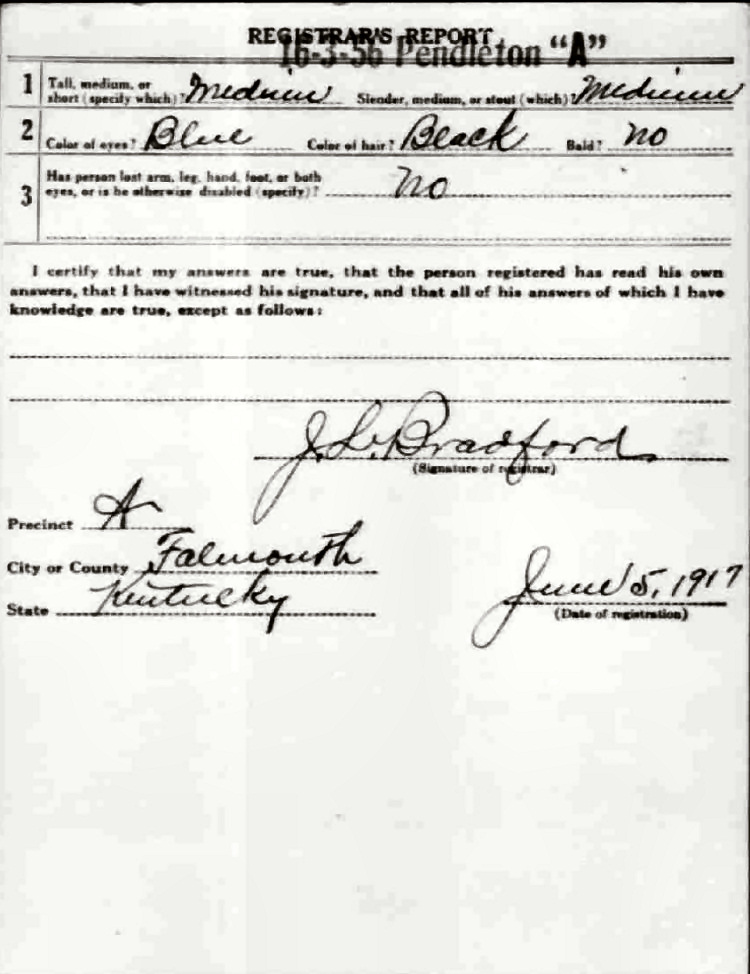 REGISTRAR'S REPORT
16-3-56 Pendleton "A"
1 Tall, medium, or short (specify which)? Medium Slender, medium, or stout (which)? Medium
2 Color of eyes? Blue Color of hair? Black Bald? No
3 Has person lost arm, leg, hand, foot, or both
eyes, or is he otherwise disabled (specify)? No
I certify that my answers are true, that the person registered has read his own
answers, that I have witnessed his signature, and that all of his answers of which I have
knowledge are true, except as follows:
J. L. Bradford
(Signature of registrar)
Precinct A
City or County Falmouth
State Kentucky
June 5, 1917
(Date of registration)